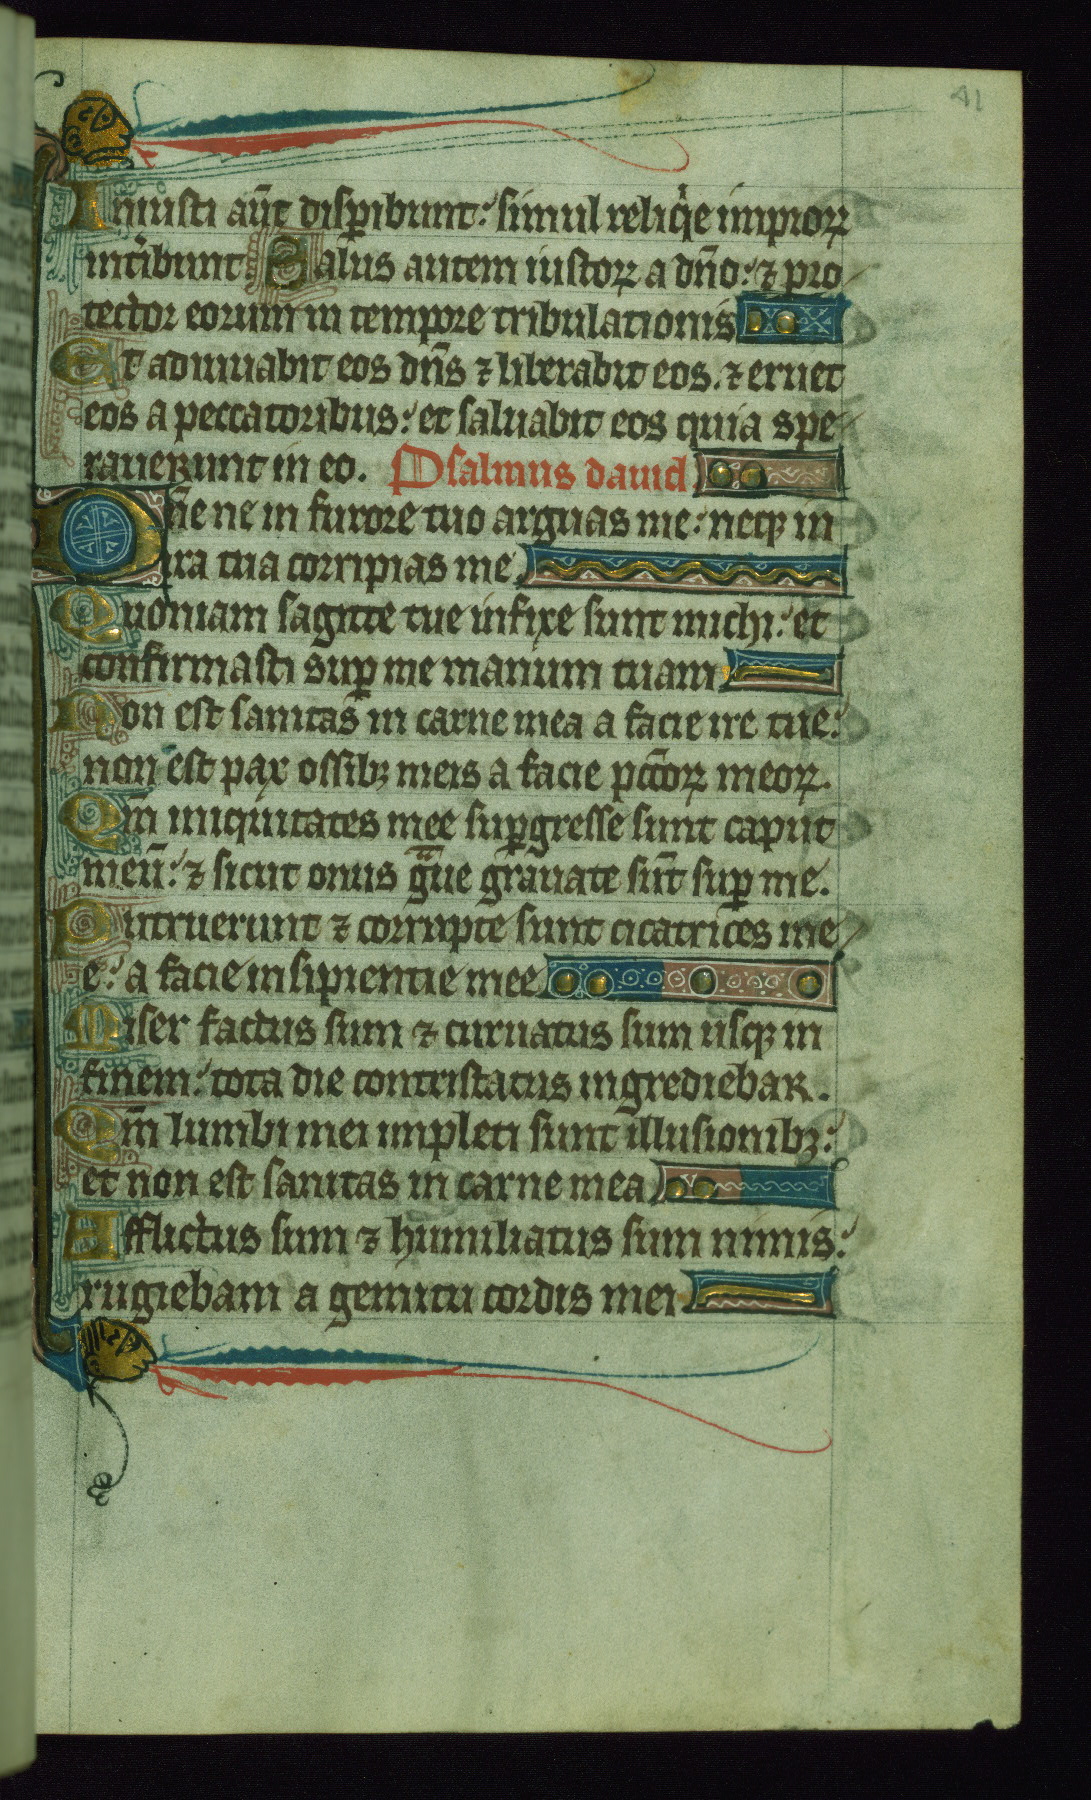 41
Iniusti aut̄ disꝑibunt: simul reliqͥe impioꝝ
int̾ibunt Salus autem iustoꝝ a dn̄o: ⁊ pro
tector eorum in tempore tribulationis
Et adiuuabit eos dn̄s ⁊ liberabit eos. ⁊ eruet
eos a peccatoribus: et saluabit eos quia spe
rauerunt in eo. Psalmus dauid
Dn̄e ne in furore tuo arguas me: neqꝫ in
ira tua corripias me
Quoniam sagitte tue infixe sunt michi: et
confirmasti suꝑ me manum tuam
Non est sanitas in carne mea a facie ire tue:
non est pax ossibꝫ meis a facie pcc̄oꝝ meoꝝ.
Qm̄ iniquitates mee suꝑgresse sunt caput
meū: ⁊ sicut onus gͣue grauate sūt suꝑ me.
Putruerunt ⁊ corrupte sunt cicatrices me
e: a facie insipientie mee
Miser factus sum ⁊ curuatus sum usqꝫ in
finem: tota die contristatus ingrediebar.
Qm̄ lumbi mei impleti sunt illusionibꝫ:
et non est sanitas in carne mea
Afflictus sum ⁊ humiliatus sum nimis:
rugiebam a gemitu cordis mei